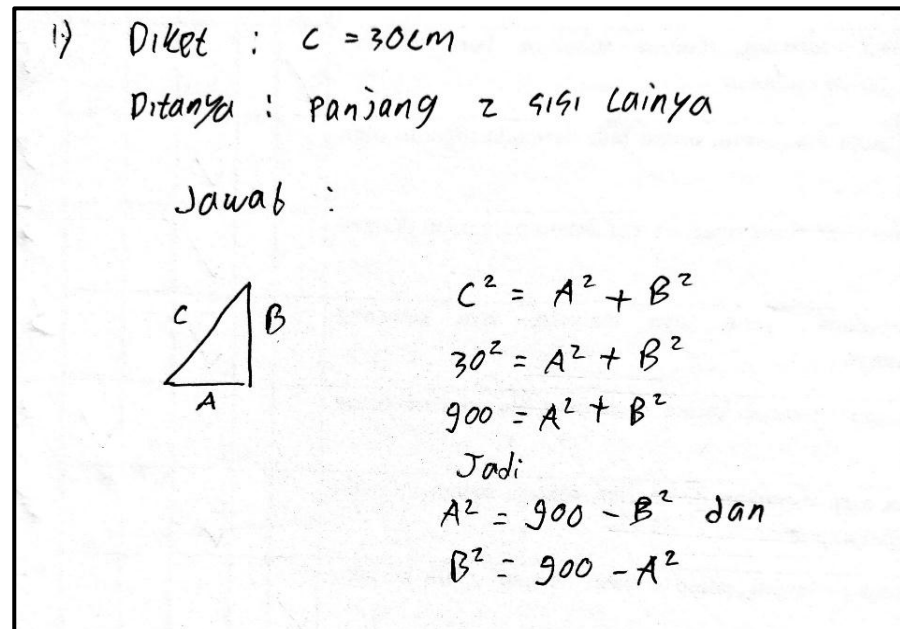 1.) Diket : C = 30cm
Ditanya : Panjang 2 sisi Lainya
Jawab :
C
B
A
C² = A² + B²
30² = A² + B²
900 = A² + B²
Jadi
A² = 900 - B² dan
B² = 900 - A²